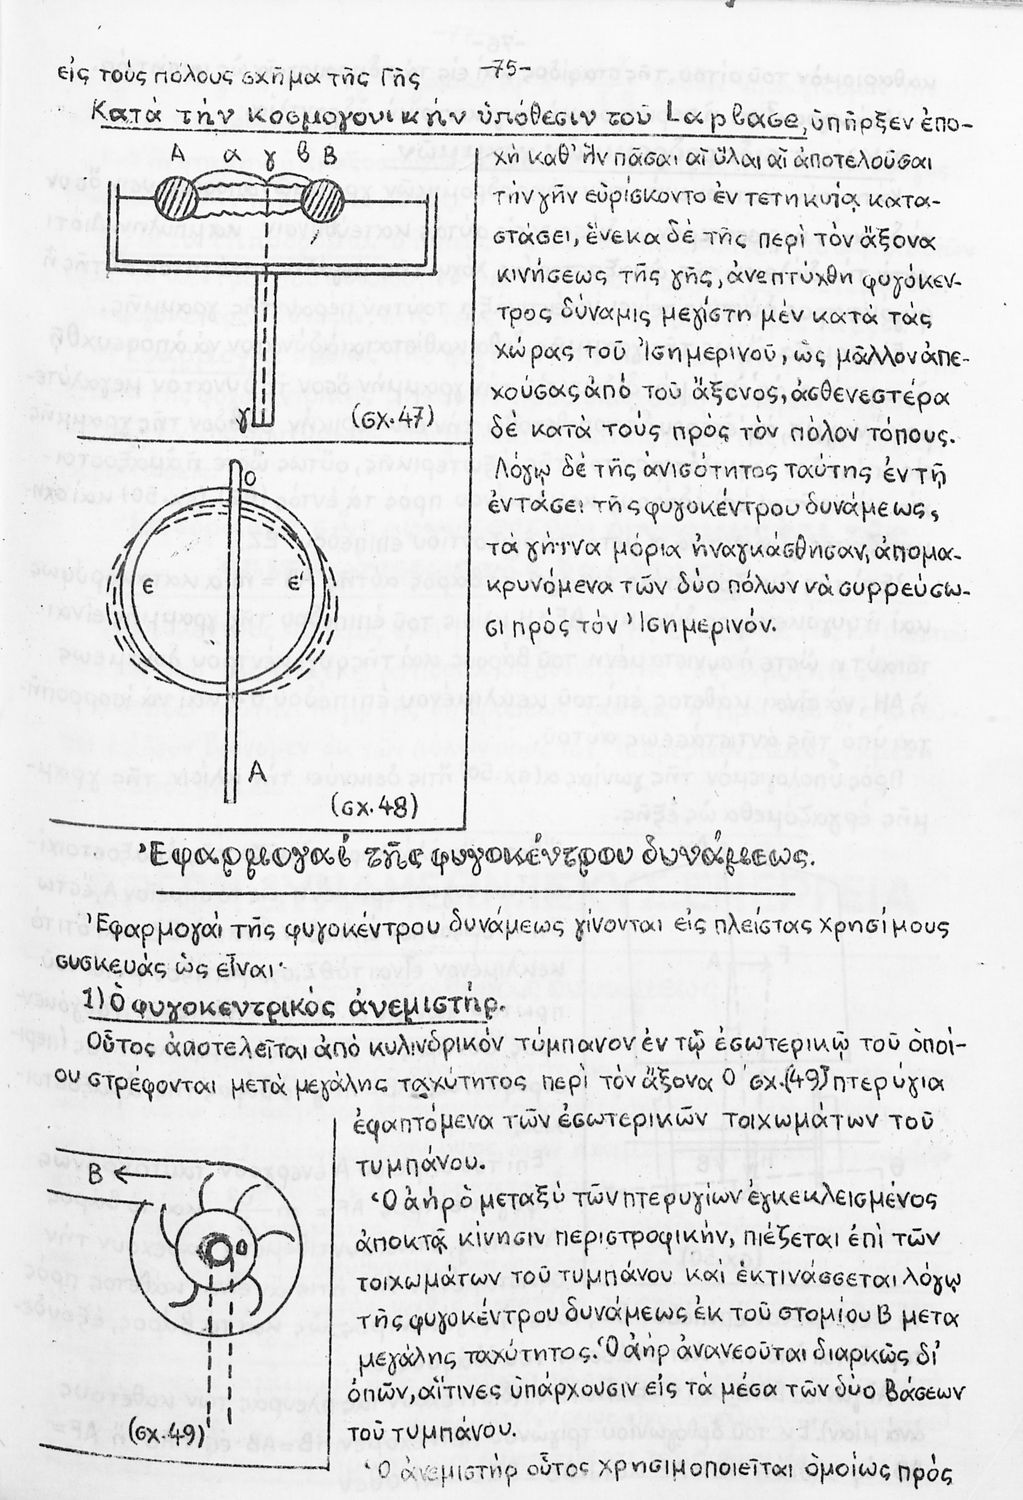 -75-
εἰς τούς πόλους σχῆμα τῆς Γῆς
Κατά τήν κοσμογονικήν ὑπόθεσιν τοῦ Laplase, ὑπῆρξεν ἐπο-
χή καθ' ἥν πᾶσαι αἱ ὗλαι αἱ ἀποτελοῦσαι
τήν γῆν εὑρίσκοντο ἐν τετηκυίᾳ κατα-
στάσει, ἕνεκα δέ τῆς περί τόν ἄξονα
κινήσεως τῆς γῆς, ἀνεπτύχθη φυγόκεν-
τρος δύναμις μεγίστη μέν κατά τάς
χώρας τοῦ Ἰσημερινοῦ, ὡς μᾶλλον ἀπε-
χούσας ἀπό τοῦ ἄξονος, ἀσθενεστέρα
δέ κατά τούς πρός τόν πόλον τόπους.
Λόγῳ δέ τῆς ἀνισότητος ταύτης ἐν τῇ
ἐντάσει τῆς φυγοκέντρου δυνάμεως,
τά γήϊνα μόρια ἠναγκάσθησαν, ἀπομα-
κρυνόμενα τῶν δύο πόλων νά συρρεύσω-
σι πρός τόν Ἰσημερινόν.
Α α γ β Β
γ
(σχ. 47)
Ο
ε ε'
Α
(σχ. 48)
Ἐφαρμογαί τῆς φυγοκέντρου δυνάμεως.
Ἐφαρμογαί τῆς φυγοκέντρου δυνάμεως γίνονται εἰς πλείστας χρησίμους
συσκευάς ὡς εἶναι·
1) Ὁ φυγοκεντρικός ἀνεμιστήρ.
Οὗτος ἀποτελεῖται ἀπό κυλινδρικόν τύμπανον ἐν τῷ ἐσωτερικῷ τοῦ ὁποί-
ου στρέφονται μετά μεγάλης ταχύτητος περί τόν ἄξονα Ο σχ. (49) πτερύγια
ἐφαπτόμενα τῶν ἐσωτερικῶν τοιχωμάτων τοῦ
τυμπάνου.
Ὁ ἀήρ ὁ μεταξύ τῶν πτερυγίων ἐγκεκλεισμένος
ἀποκτᾷ κίνησιν περιστροφικήν, πιέζεται ἐπί τῶν
τοιχωμάτων τοῦ τυμπάνου καί ἐκτινάσσεται λόγῳ
τῆς φυγοκέντρου δυνάμεως ἐκ τοῦ στομίου Β μετα
μεγάλης ταχύτητος. Ὁ ἀήρ ἀνανεοῦται διαρκῶς δι'
ὀπῶν, αἵτινες ὑπάρχουσιν εἰς τά μέσα τῶν δύο βάσεων
τοῦ τυμπάνου.
Ὁ ἀνεμιστήρ οὗτος χρησιμοποιεῖται ὁμοίως πρός
Β
Ο
(σχ. 49)